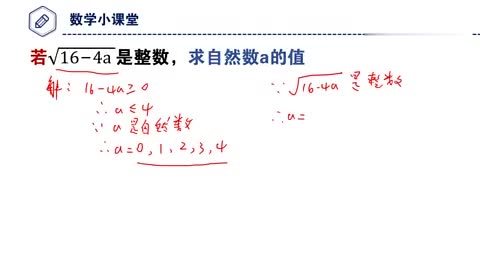 数学小课堂
若√16−4a是整数，求自然数a的值
解：16-4a≥0
∴ a≤4
∵ a是自然数
∴a=0,1,2,3,4
∵√16-4a 是整数
∴a=